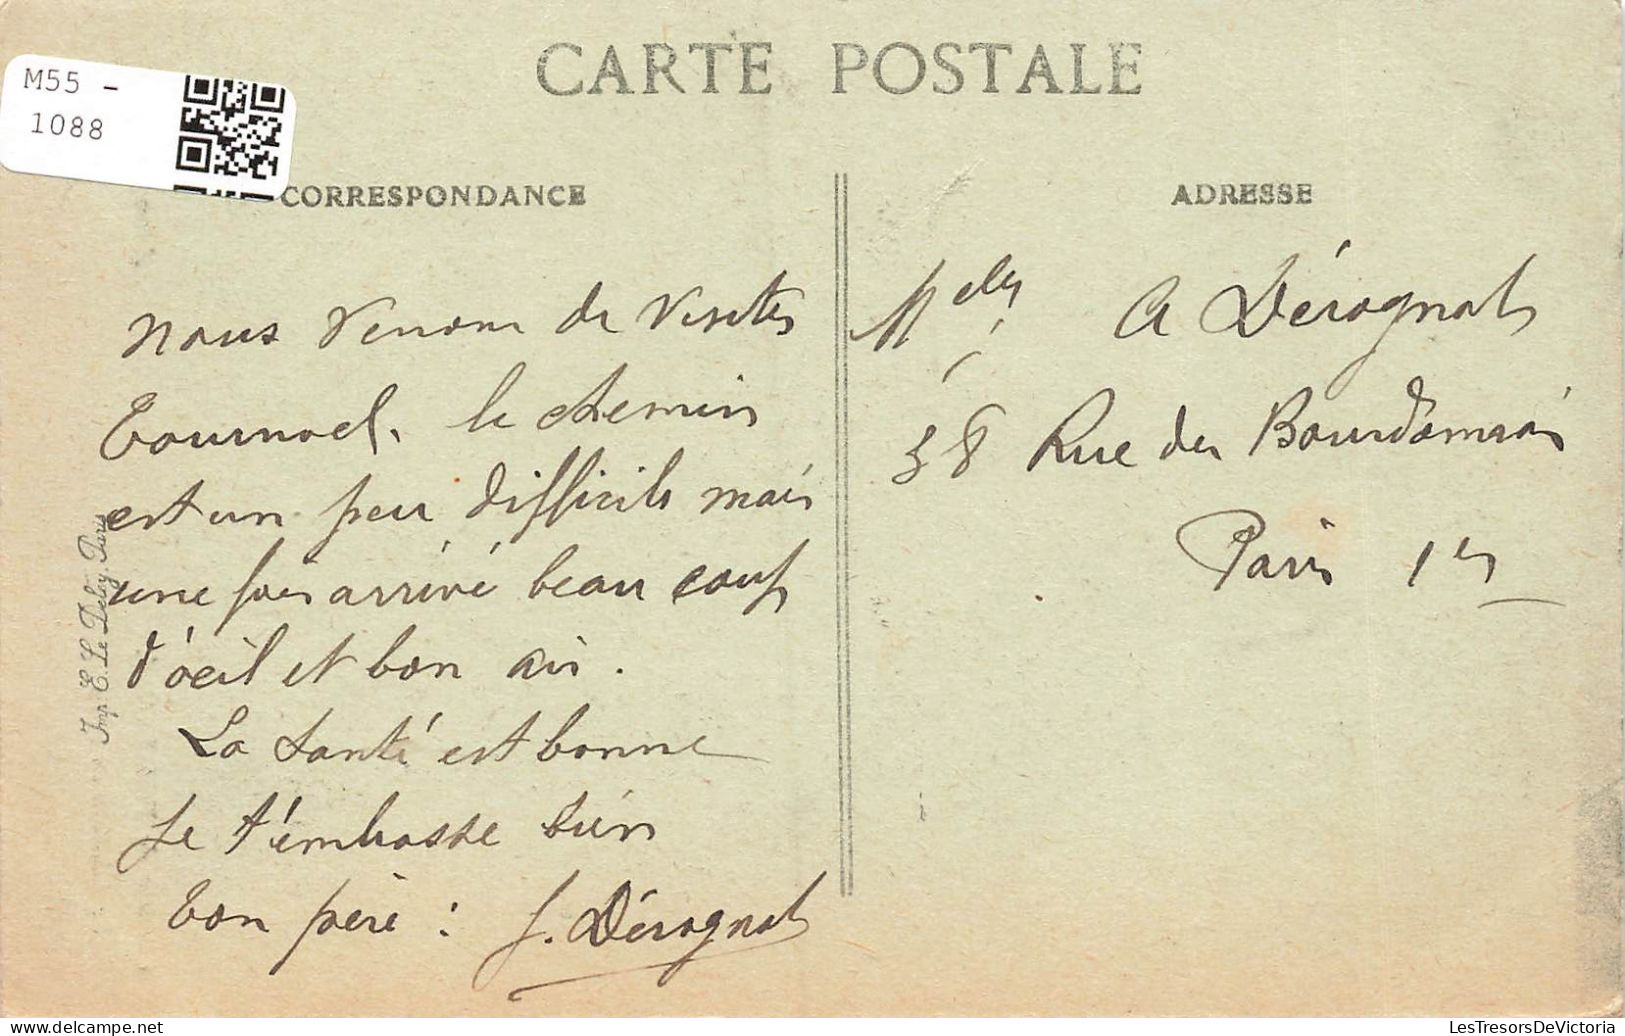 CARTE POSTALE
M55 -
1088
CORRESPONDANCE
Nous venons de visiter
Tournoel. le chemin
est un peu difficile mais
une fois arrivé beau coup
d'oeil et bon air.
La santé est bonne
Je t'embrasse bien
Ton père : J. Dérognat
Imp. E. Le Deley, Paris
ADRESSE
Melle A Dérognat
38 Rue des Bourdonnais
Paris 1er
LesTresorsDeVictoria
delcampe.net